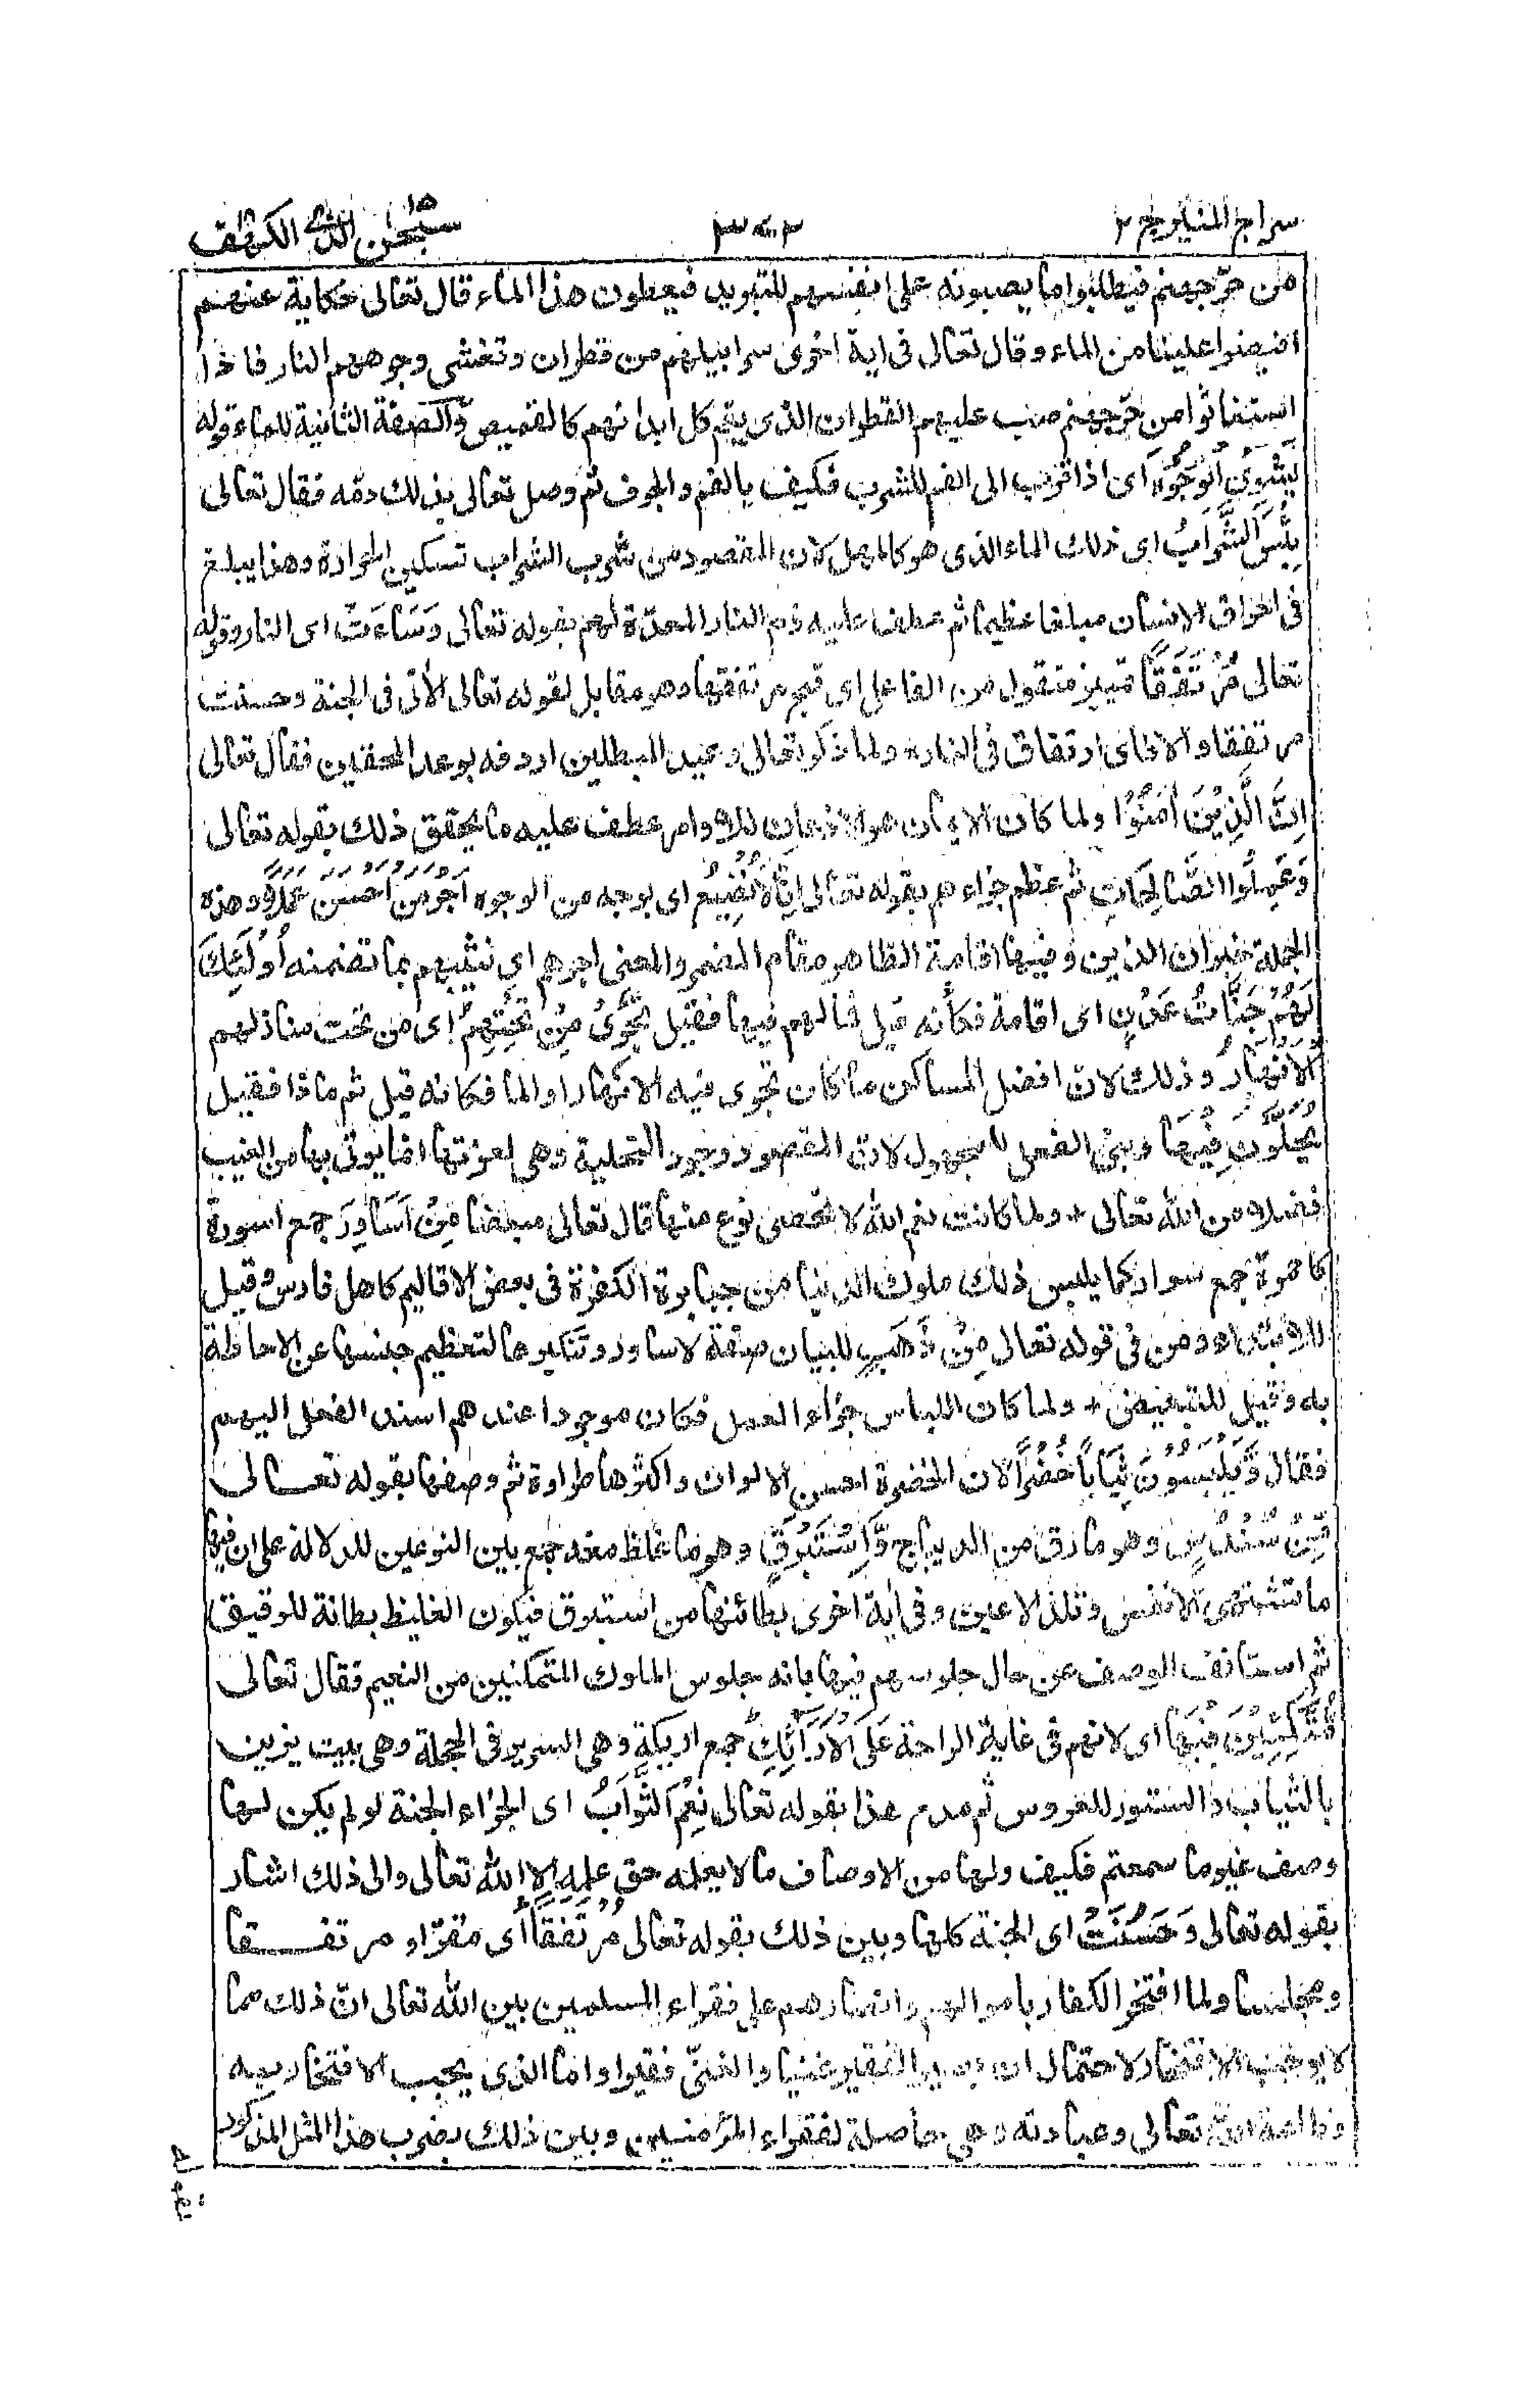 سراج المنير ج ٢
٣٠٣
سبحن الذی ١٥ الکهف ١٨
من حرّ جهنم فيطلبوا ما يصبونه على انفسهم للتبريد فيعطون هذا الماء قال تعالى حكاية عنهم
افيضوا علينا من الماء وقال تعالى فى اية اخرى سرابيلهم من قطران وتغشى وجوههم النار فاذا
استغاثوا من حرّ جهنم صب عليهم القطران الذى يعم كل ابدانهم كالقميص والصفة الثانية للماء قوله
يَشْوِى الْوُجُوْهَ اى اذا قرب الى الفم للشرب فكيف بالفم والجوف ثم وصل تعالى بذلك ذمّه فقال تعالى
بِئْسَ الشَّرَابُ اى ذلك الماء الذى هو كالمهل لان المقصود من شرب الشراب تسكين الحرارة وهذا يبلغ
فى احراق الانسان مبلغا عظيما ثم عطف عليه ذم النار المعدّة لهم بقوله تعالى وَسَاءَتْ اى النار وقوله
تعالى مُرْتَفَقًا تمييز منقول من الفاعل اى قبح مرتفقها وهو مقابل لقوله تعالى الاٰتى فى الجنة وحسنت
مرتفقا والا فاى ارتفاق فى النار ولما ذكر تعالى وعيد المبطلين اردفه بوعد المحقين فقال تعالى
اِنَّ الَّذِيْنَ اٰمَنُوْا ولما كان الايمان هو الاذعان للاوامر عطف عليه ما يحقق ذلك بقوله تعالى
وَعَمِلُوا الصَّالِحَاتِ ثم عظم جزاءهم بقوله تعالى اِنَّا لَا نُضِيْعُ اى بوجه من الوجوه اَجْرَ مَنْ اَحْسَنَ عَمَلًا وهذه
الجملة خبر ان الذين وفيها اقامة الظاهر مقام المضمر والمعنى اجرهم اى نثيبهم بما تضمنه اُولٰٓئِكَ
لَهُمْ جَنَّاتُ عَدْنٍ اى اقامة فكأنه قيل فما لهم فيها فقيل تَجْرِىْ مِنْ تَحْتِهِمُ اى من تحت منازلهم
الْاَنْهَارُ وذلك لان افضل المساكن ما كان تجرى فيه الانهار او الماء فكانه قيل ثم ماذا فقيل
يُحَلَّوْنَ فِيْهَا وبنى الفعل للمجهول لانّ المقصود وجود التحلية وهى لعزتها انما يوتى بها من الغيب
فضلا من الله تعالى + ولما كانت نعم الله لا تحصى نوع منها قال تعالى مبعضا مِنْ اَسَاوِرَ جمع اسورة
كاحمرة جمع سوار كما يلبس ذلك ملوك الدنيا من جبابرة الكفرة فى بعض الاقاليم كاهل فارس وقيل
للابتداء ومن فى قوله تعالى مِنْ ذَهَبٍ للبيان صفة لاساور وتنكيرها لتعظيم جنسها عن الاحاطة
به وقيل للتبعيض + ولما كان اللباس جزاء العمل فكان موجودا عندهم اسند الفعل اليهم
فقال وَّيَلْبَسُوْنَ ثِيَابًا خُضْرًا لان الخضرة احسن الالوان واكثرها طراوة ثم وصفها بقوله تعالى
مِّنْ سُنْدُسٍ وهو ما رقّ من الديباج وَّاِسْتَبْرَقٍ وهو ما غلظ منه جمع بين النوعين للدلالة على ان فيها
ما تشتهى الانفس وتلذ الاعين وفى اٰية اخرى بطائنها من استبرق فيكون الغليظ بطانة للرقيق
ثم استانف الوصف عن حال جلوسهم فيها بانه جلوس الملوك المتمكنين من النعيم فقال تعالى
مُتَّكِئِيْنَ فِيْهَا اى لانهم فى غاية الراحة عَلَى الْاَرَآئِكِ جمع اريكة وهى السرير فى الحجلة وهى بيت يزين
بالثياب والستور للعروس ثم مدح هذا بقوله تعالى نِعْمَ الثَّوَابُ اى الجزاء الجنة لو لم يكن لها
وصف غير ما سمعتم فكيف ولها من الاوصاف ما لا يعلمه حق علمه الا الله تعالى والى ذلك اشار
بقوله تعالى وَحَسُنَتْ اى الجنة كلها وبين ذلك بقوله تعالى مُرْتَفَقًا اى مقرّا ومرتفقا
ومجلسا ولما افتخر الكفار باموالهم وانصارهم على فقراء المسلمين بين الله تعالى انّ ذلك مما
لا يوجب الافتخار لاحتمال ان يصير الفقير غنيا والغنىّ فقيرا واما الذى يجب الافتخار به
وطاعة الله تعالى وعبادته وهى حاصلة لفقراء المؤمنين وبين ذلك بضرب هذا المثل المذكور